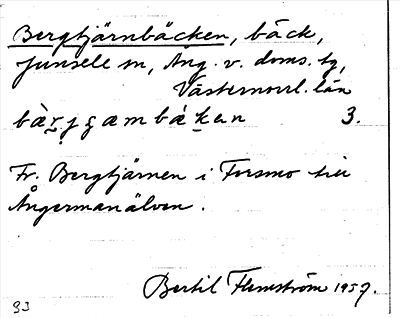 Bergtjärnbäcken, bäck,
Junsele sn, Ång. v. doms. tg,
Västernorrl. län
3.
Fr. Bergtjärnen i Forsmo till
Ångermanälven.
Bertil Flemström 1959.
93